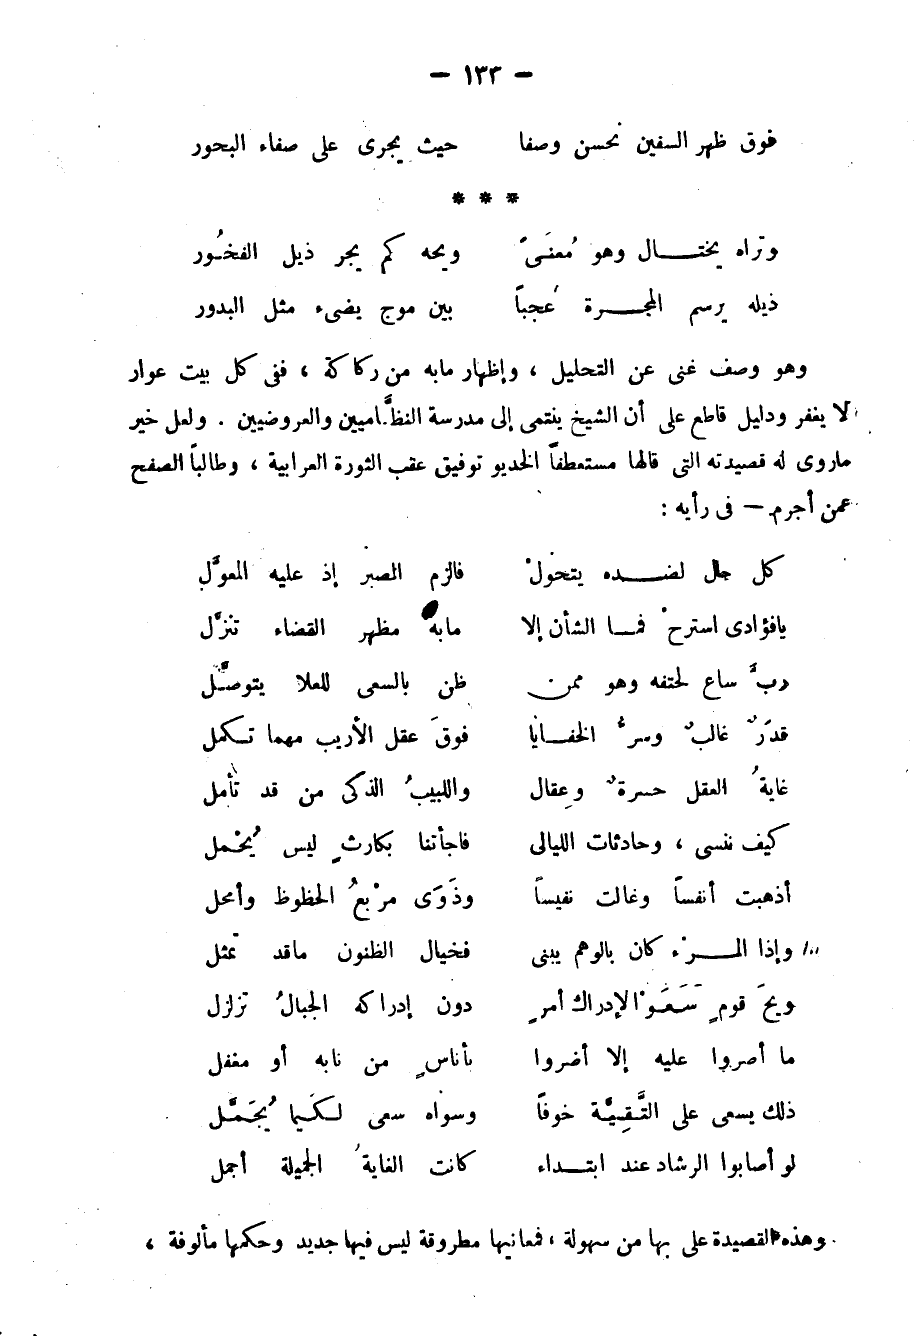 – ١٣٣ –
فوق ظهر السفين نحسن وصفا حيث يجرى على صفاء البحور
* * *
وتراه يختــال وهو مُعنَىً ويحه كم يجر ذيل الفخُور
ذيله يرسم المجــرة عُجباً بين موج يضىء مثل البدور
وهو وصف غنى عن التحليل ، وإظهار مابه من ركاكة ، ففى كل بيت عوار
لا يغفر ودليل قاطع على أن الشيخ ينتمى إلى مدرسة النظَّاميين والعروضيين . ولعل خير
ماروى له قصيدته التى قالها مستعطفاً الخديو توفيق عقب الثورة العرابية ، وطالباً الصفح
عمن أجرم – فى رأيه :
كل حال لضــده يتحولْ فالزم الصبر إذ عليه المعوَّل
يافؤادى استرحْ فمــا الشأن إلا مابه مظهر القضاء تنزَّل
ربَّ ساع لحتفه وهو ممن ظن بالسعى للعلا يتوصَّل
قدَرٌ غالبٌ وسرُّ الخفــايا فوقَ عقل الأريب مهما تكمل
غايةُ العقل حسرةٌ وعقال واللبيبُ الذكى من قد تأمل
كيف ننسى ، وحادثات الليالى فاجأتنا بكارثٍ ليس يُحْمل
أذهبت أنفساً وغالت نفيساً وذَوَى مرْبعُ الحظوظ وأمحل
وإذا المــرْء كان بالوهم يبنى فخيال الظنون ماقد تمثل
ويحَ قومٍ سَعَوْا لإدراك أمرٍ دون إدراكه الجبالُ تزلزل
ما أصروا عليه إلا أضروا بأناسٍ من نابه أو مغفل
ذلك يسعى على التَّقِيَّة خوفاً وسواه سعى لكيما يُجَمَّل
لو أصابوا الرشاد عند ابتــداء كانت الغايةُ الجميلة أجمل
وهذه القصيدة على بها من سهولة ، فمعانيها مطروقة ليس فيها جديد وحكمها مألوفة ،